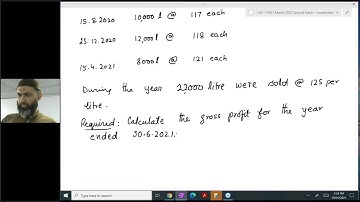 CAF-1 FAR-1 March 2022 special batch - Inventories
15.8.2020 10,000 l @ 117 each
25.12.2020 12,000 l @ 118 each
15.4.2021 8000 l @ 121 each
During the year 22,000 litre were sold @ 125 per
litre.
Required: Calculate the gross profit for the year
ended 30.6.2021.
Type here to search